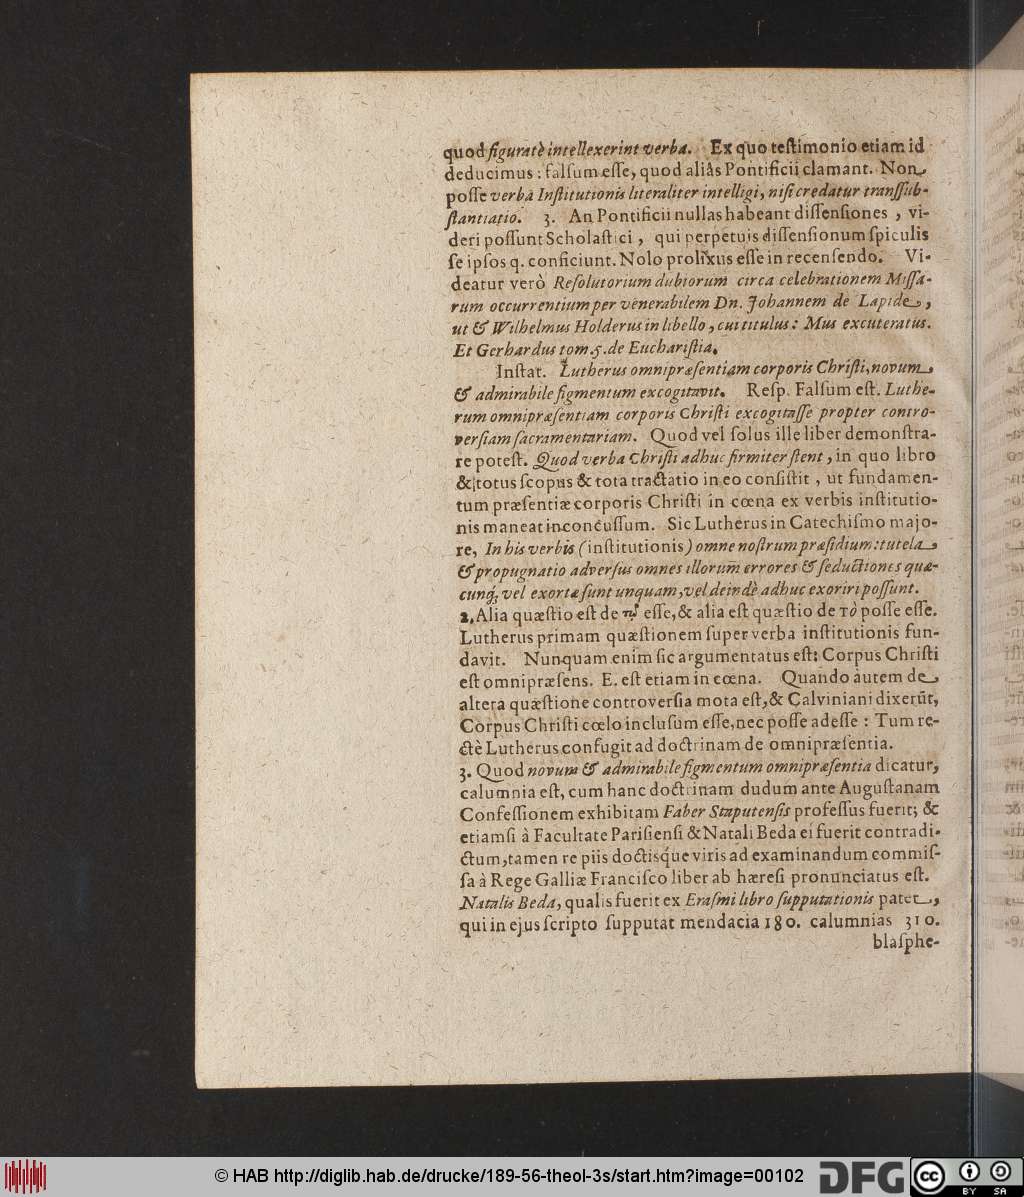 quod figuratè intellexerint verba. Ex quo teſtimonio etiam id
deducimus: falſum eſſe, quod aliàs Pontificii clamant. Non
poſſe verba Inſtitutionis literaliter intelligi, niſi credatur transſub-
ſtantiatio. 3. An Pontificii nullas habeant diſſenſiones, vi-
deri poſſunt Scholaſtici, qui perpetuis diſſenſionum ſpiculis
ſe ipſos q. conficiunt. Nolo prolixus eſſe in recenſendo. Vi-
deatur verò Reſolutorium dubiorum circa celebrationem Miſſa-
rum occurrentium per venerabilem Dn. Johannem de Lapide,
ut & Wilhelmus Holderus in libello, cui titulus: Mus excuteratus.
Et Gerhardus tom. 5. de Euchariſtia.
Inſtat. Lutherus omnipræſentiam corporis Chriſti, novum
& admirabile figmentum excogitavit. Reſp. Falſum eſt. Luthe-
rum omnipræſentiam corporis Chriſti excogitaſſe propter contro-
verſiam ſacramentariam. Quod vel ſolus ille liber demonſtra-
re poteſt. Quod verba Chriſti adhuc firmiter ſtent, in quo libro
& totus ſcopus & tota tractatio in eo conſiſtit, ut fundamen-
tum præſentiæ corporis Chriſti in cœna ex verbis inſtitutio-
nis maneat inconcuſſum. Sic Lutherus in Catechiſmo majo-
re, In his verbis (inſtitutionis) omne noſtrum præſidium: tutela
& propugnatio adverſus omnes illorum errores & ſeductiones quæ-
cunq́; vel exortæ ſunt unquam, vel deindè adhuc exoriri poſſunt.
2. Alia quæſtio eſt de τῷ eſſe, & alia eſt quæſtio de τὸ poſſe eſſe.
Lutherus primam quæſtionem ſuper verba inſtitutionis fun-
davit. Nunquam enim ſic argumentatus eſt: Corpus Chriſti
eſt omnipræſens. E. eſt etiam in cœna. Quando autem de
altera quæſtione controverſia mota eſt, & Calviniani dixerūt,
Corpus Chriſti cœlo incluſum eſſe, nec poſſe adeſſe: Tum re-
ctè Lutherus confugit ad doctrinam de omnipræſentia.
3. Quod novum & admirabile figmentum omnipræſentia dicatur,
calumnia eſt, cum hanc doctrinam dudum ante Auguſtanam
Confeſſionem exhibitam Faber Staputenſis profeſſus fuerit; &
etiamſi à Facultate Pariſienſi & Natali Beda ei fuerit contradi-
ctum, tamen re piis doctisq́ue viris ad examinandum commiſ-
ſa à Rege Galliæ Franciſco liber ab hæreſi pronunciatus eſt.
Natalis Beda, qualis fuerit ex Eraſmi libro ſupputationis patet,
qui in ejus ſcripto ſupputat mendacia 180. calumnias 310.
blaſphe-
© HAB http://diglib.hab.de/drucke/189-56-theol-3s/start.htm?image=00102
DFG
cc BY SA